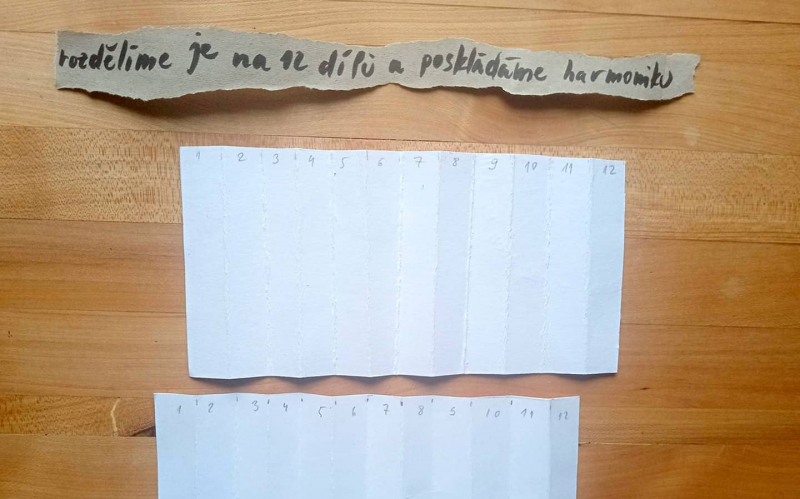 rozdělíme je na 12 dílů a poskládáme harmoniku
1 2 3 4 5 6 7 8 9 10 11 12
1 2 3 4 5 6 7 8 9 10 11 12